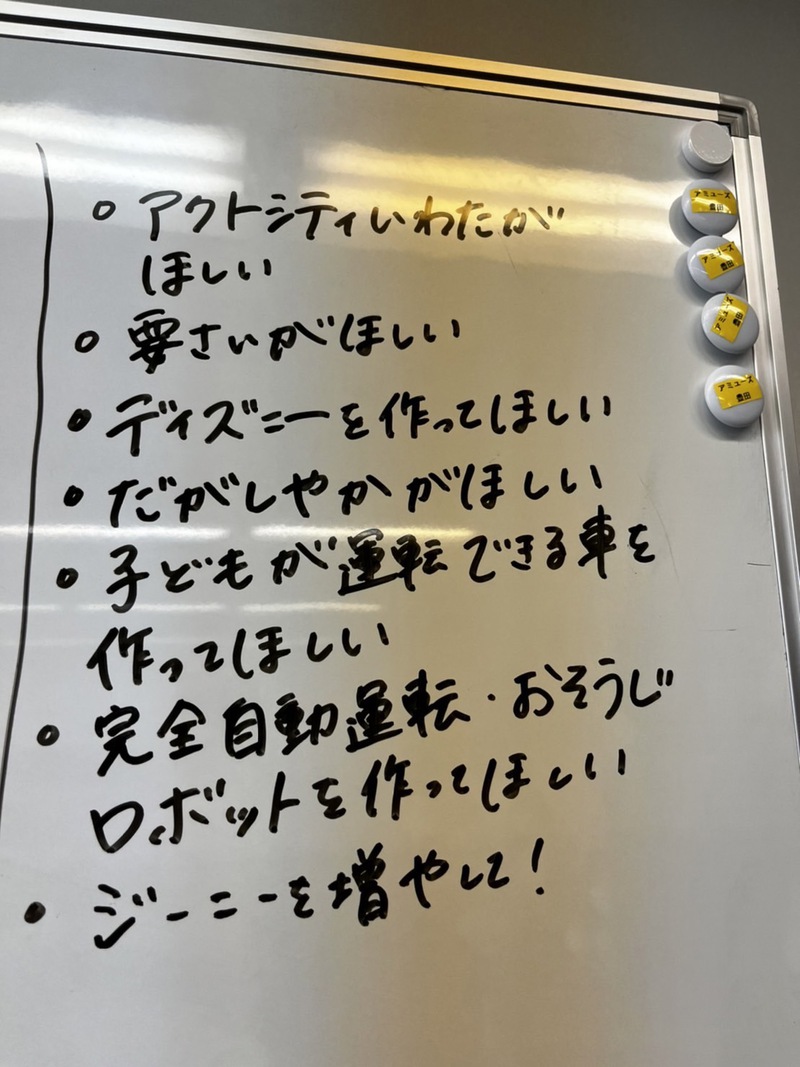 ○ アクトシティいわたが
ほしい
○ 要さいがほしい
○ ディズニーを作ってほしい
○ だがしやかがほしい
○ 子どもが運転できる車を
作ってほしい
○ 完全自動運転・おそうじ
ロボットを作ってほしい
● ジーニーを増やして!
アミューズ
豊田
アミューズ
豊田
アミューズ
豊田
アミューズ
豊田